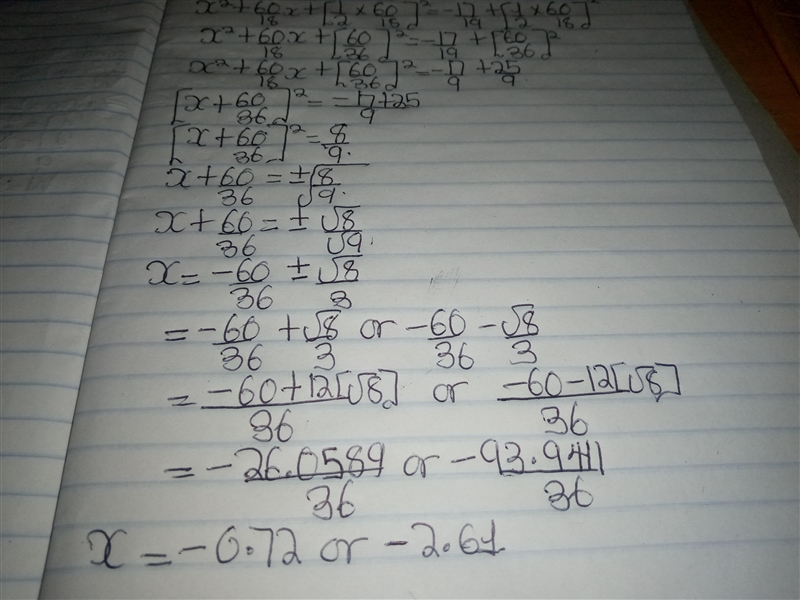 x² + 60/18 x + [1/2 × 60/18]² = -17/19 + [1/2 × 60/18]²
x² + 60/18 x + [60/36]² = -17/19 + [60/36]²
x² + 60/18 x + [60/36]² = -17/9 + 25/9
[x + 60/36]² = = 17+25/9
[x + 60/36]² = 8/9.
x + 60/36 = ±√8/9.
x + 60/36 = ± √8/√9.
x = -60/36 ± √8/3
= -60/36 + √8/3 or -60/36 - √8/3
= -60+12[√8]/36 or -60-12[√8]/36
= -26.0589/36 or -93.9411/36
x = -0.72 or -2.61